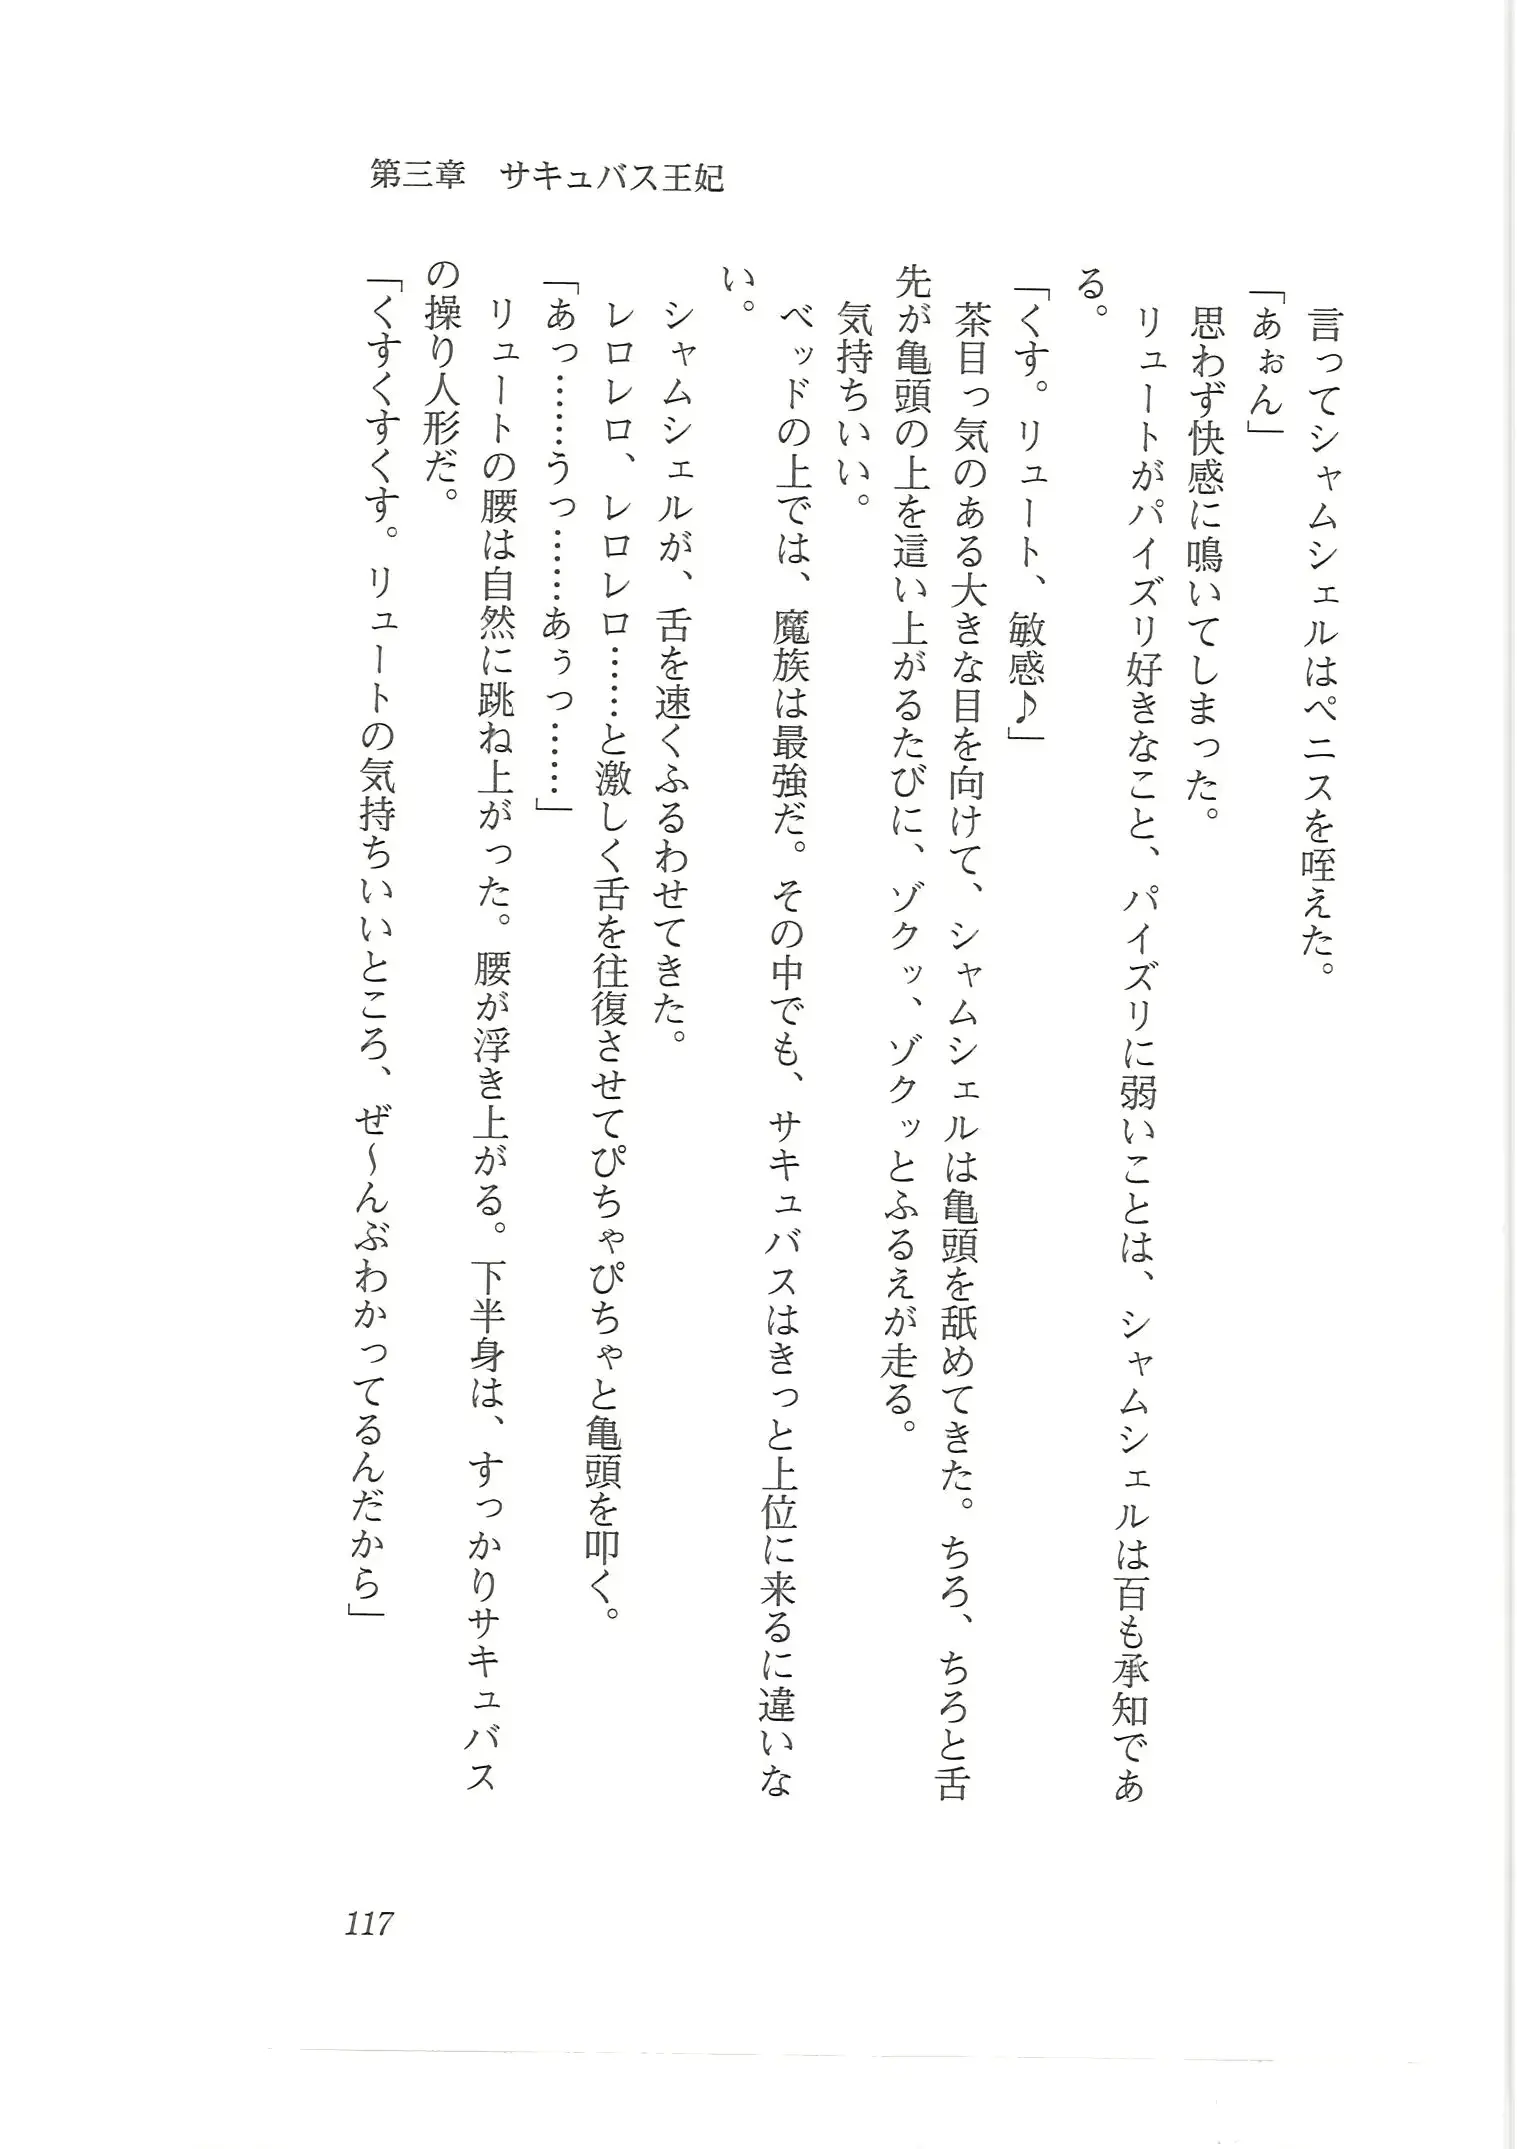 第三章　サキュバス王妃
　言ってシャムシェルはペニスを咥えた。
「あぉん」
　思わず快感に鳴いてしまった。
　リュートがパイズリ好きなこと、パイズリに弱いことは、シャムシェルは百も承知であ
る。
「くす。リュート、敏感♪」
　茶目っ気のある大きな目を向けて、シャムシェルは亀頭を舐めてきた。ちろ、ちろと舌
先が亀頭の上を這い上がるたびに、ゾクッ、ゾクッとふるえが走る。
　気持ちいい。
　ベッドの上では、魔族は最強だ。その中でも、サキュバスはきっと上位に来るに違いな
い。
　シャムシェルが、舌を速くふるわせてきた。
　レロレロ、レロレロ……と激しく舌を往復させてぴちゃぴちゃと亀頭を叩く。
「あっ……うっ……あぅっ……」
　リュートの腰は自然に跳ね上がった。腰が浮き上がる。下半身は、すっかりサキュバス
の操り人形だ。
「くすくすくす。リュートの気持ちいいところ、ぜ〜んぶわかってるんだから」
117